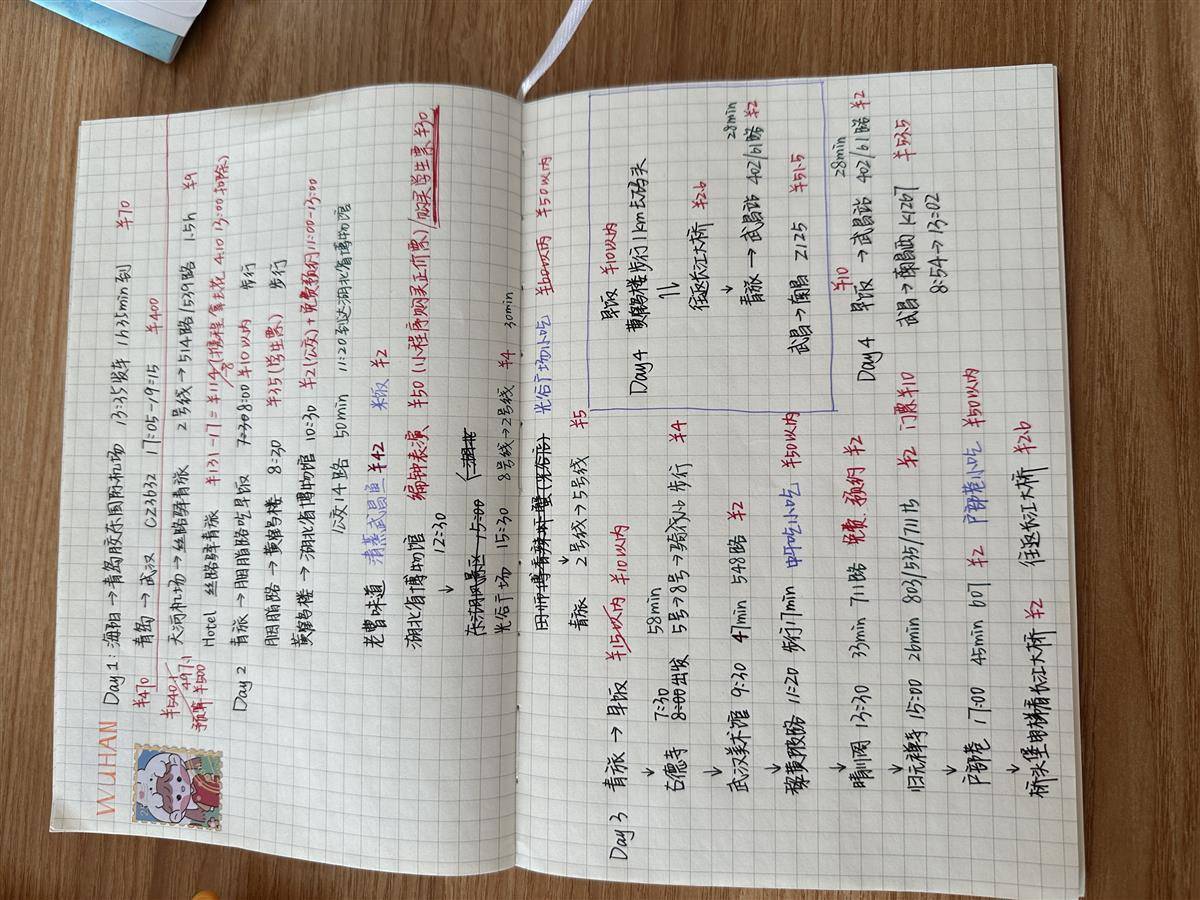 WUHAN
Day 1: 海阳→青岛胶东国际机场 13:35发车 1h35min到 ¥70
¥470
青岛→武汉 CZ3632 17:05-19:15 ¥400
¥540.1
497.1
预算¥500
天河机场→丝路驿青旅 2号线→514路/539路 1.5h ¥9
Hotel 丝路驿青旅 ¥131-17=¥114
Day 2 青旅→胭脂路吃早饭 7:30 8:00 ¥10以内 步行
胭脂路→黄鹤楼 8:30 ¥35(学生票) 步行
黄鹤楼→湖北省博物馆 10:30 ¥2(公交)+免费预约11:00-13:00
公交14路 50min 11:20到达湖北省博物馆
老曹味道 清蒸武昌鱼 ¥42 米饭 ¥2
湖北省博物馆 编钟表演 ¥50(小程序购买正价票)/购买学生票¥30
12:30
↓
东湖风景区 15:00
光谷广场 15:30 8号线→2号线 ¥4 30min
光谷广场小吃 ¥50以内
↓
青旅 2号线→5号线 ¥5
Day 3 青旅→早饭 ¥15以内 ¥10以内
↓ 7:30 58min
古德寺 8:00出发 5号→8号→骑行/步行 ¥4
↓
武汉美术馆 9:30 47min 548路 ¥2
↓
黎黄陂路 11:20 步行17min 中午吃小吃 ¥50以内
↓
晴川阁 13:30 33min 711路 免费、预约 ¥2
↓
归元禅寺 15:00 26min 803/535/711路 ¥2 门票¥10
↓
户部巷 17:00 45min 607 ¥2 户部巷小吃 ¥50以内
↓
桥头堡电梯看长江大桥 ¥2 往返长江大桥 ¥2b
早饭 ¥10以内
Day 4 黄鹤楼步行1km去码头
往返长江大桥 ¥2b
↓ 28min
青旅→武昌站 402/61路 ¥2
武昌→南昌 Z125 ¥51.5
¥10 28min
Day 4 早饭→武昌站 402/61路 ¥2
武昌→南昌西 K1267 ¥53.5
8:54→13:02